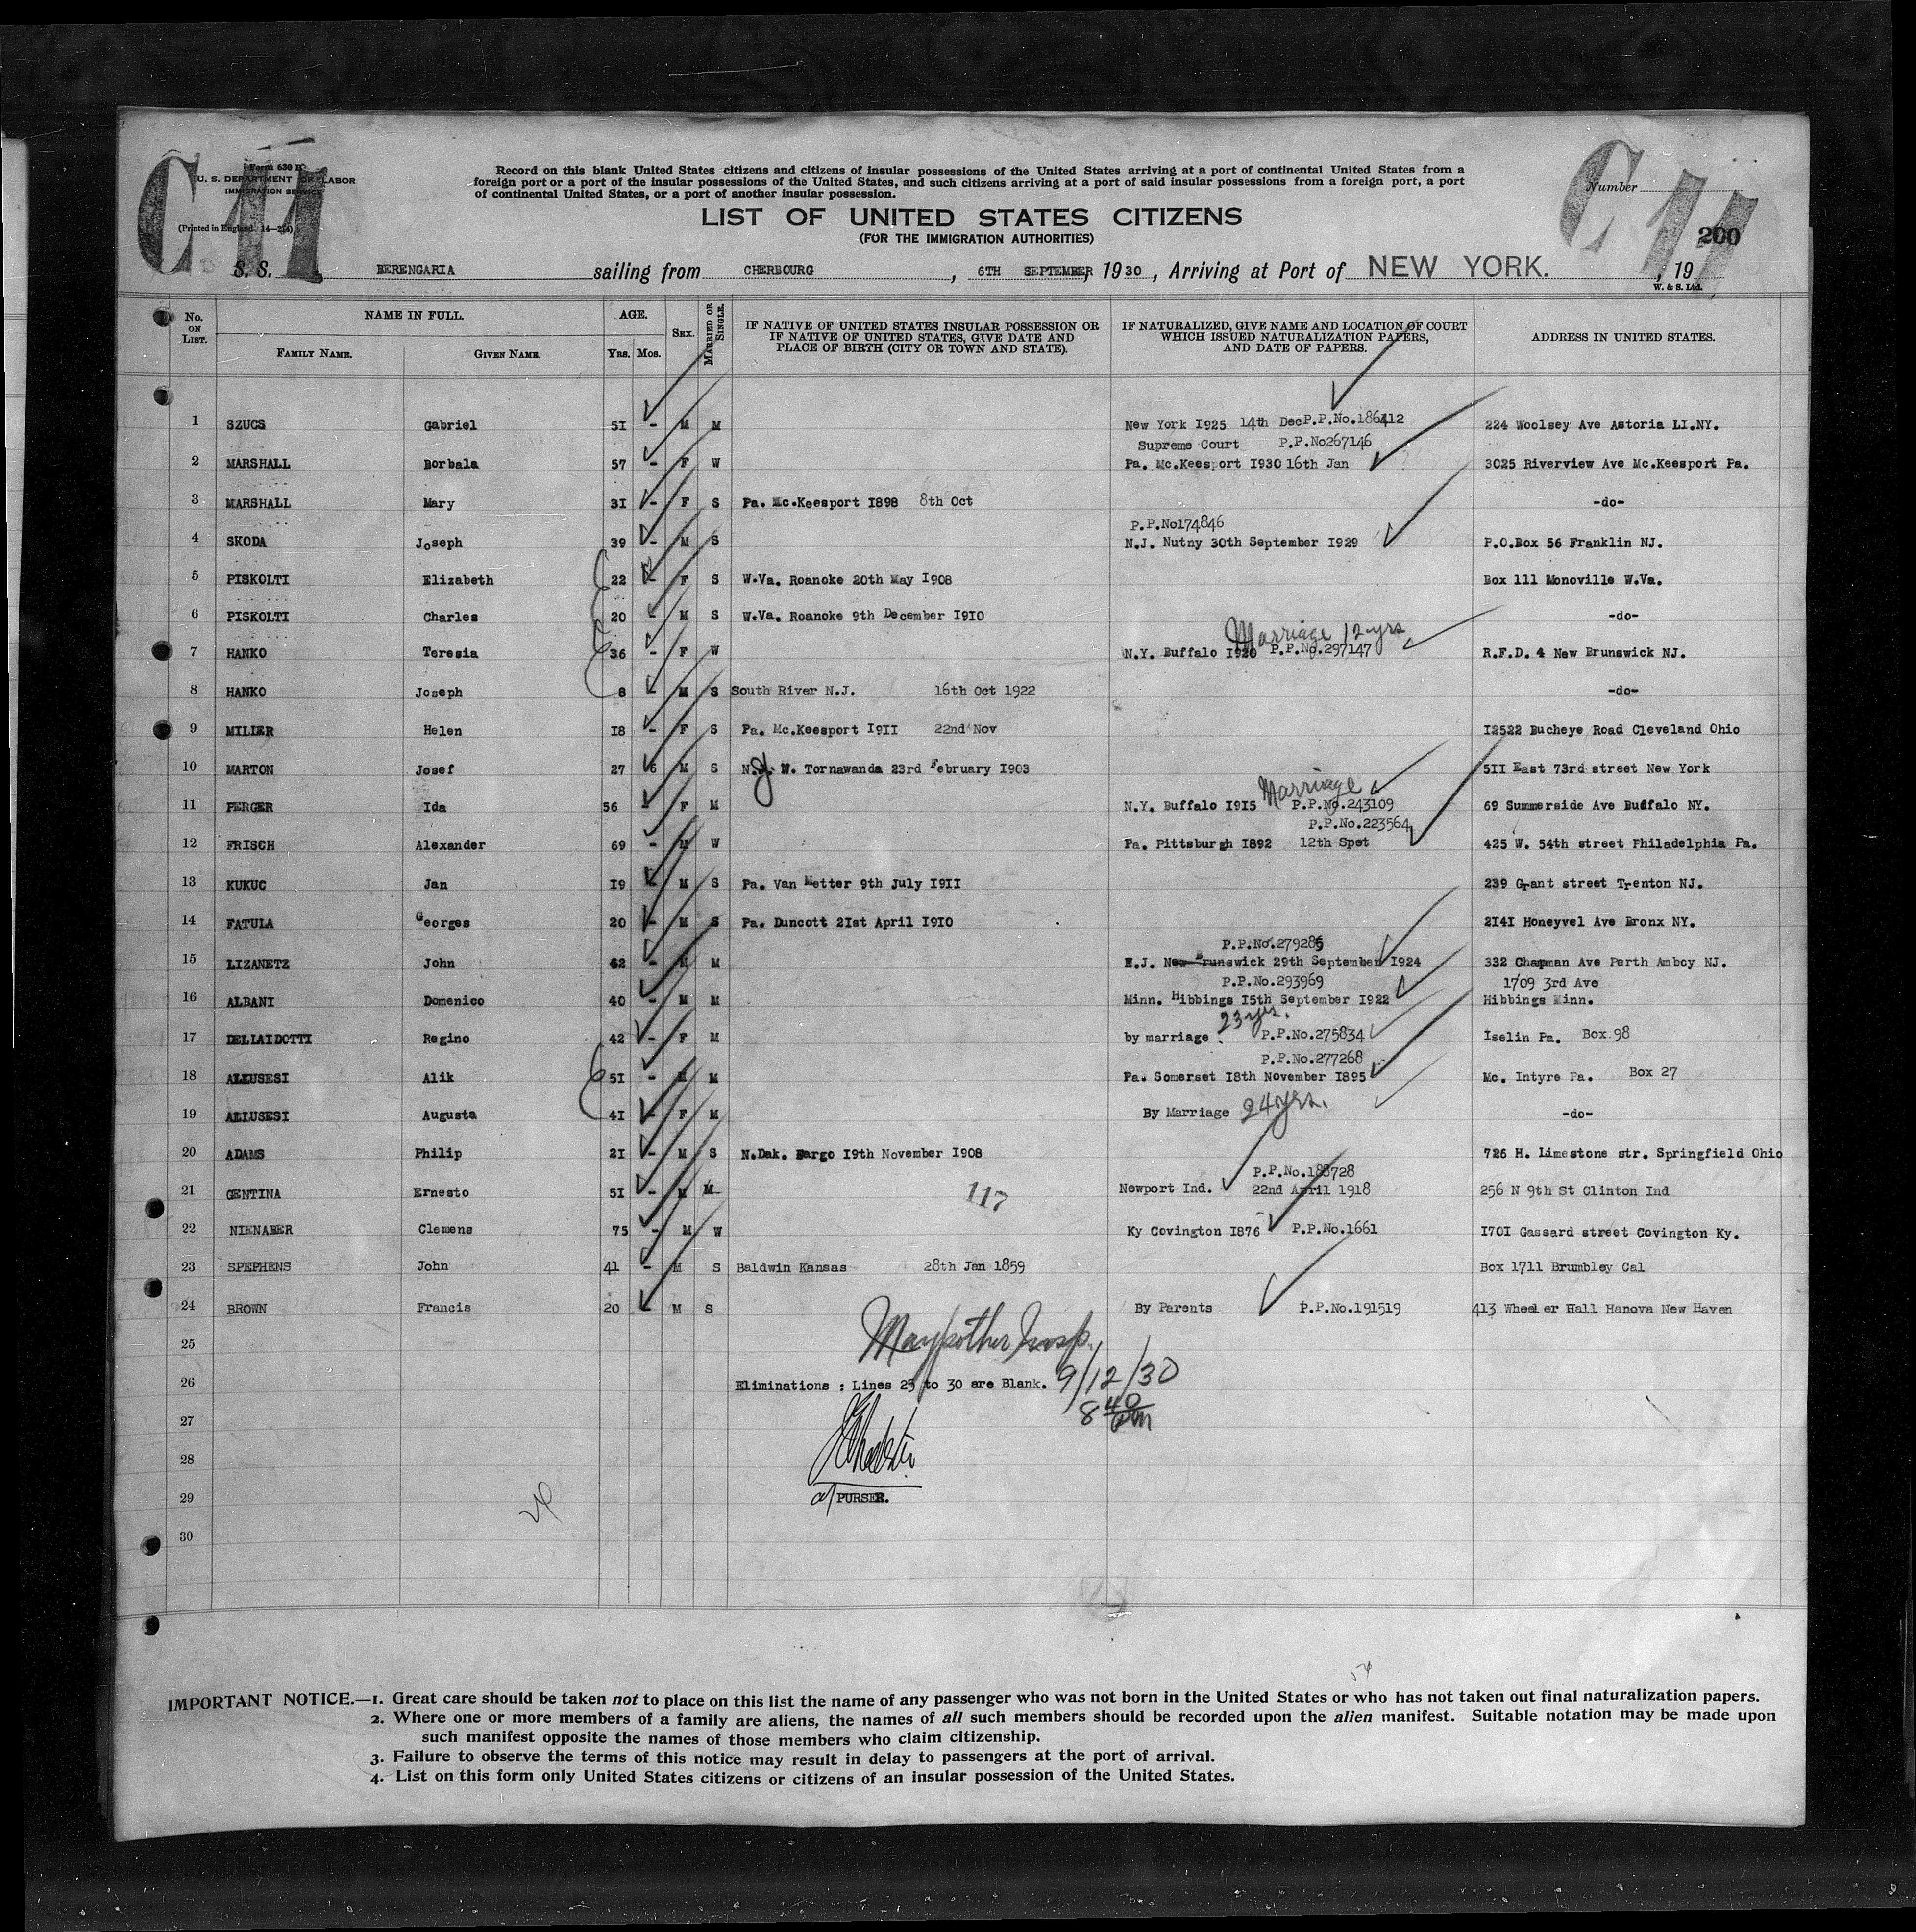 Form 630 B
U. S. DEPARTMENT OF LABOR
IMMIGRATION SERVICE
(Printed in England. 14—234)
C 11
Record on this blank United States citizens and citizens of insular possessions of the United States arriving at a port of continental United States from a
foreign port or a port of the insular possessions of the United States, and such citizens arriving at a port of said insular possessions from a foreign port, a port
of continental United States, or a port of another insular possession.
Number
C 11
200
LIST OF UNITED STATES CITIZENS
(FOR THE IMMIGRATION AUTHORITIES)
S. S. BERENGARIA sailing from CHERBOURG , 6TH SEPTEMBER, 1930 , Arriving at Port of NEW YORK. , 19
W. & S. Ltd.
No. ON LIST. NAME IN FULL. FAMILY NAME. GIVEN NAME. AGE. YRS. MOS. SEX. MARRIED OR SINGLE. IF NATIVE OF UNITED STATES INSULAR POSSESSION OR IF NATIVE OF UNITED STATES, GIVE DATE AND PLACE OF BIRTH (CITY OR TOWN AND STATE). IF NATURALIZED, GIVE NAME AND LOCATION OF COURT WHICH ISSUED NATURALIZATION PAPERS, AND DATE OF PAPERS. ADDRESS IN UNITED STATES.
1 SZUCS Gabriel 5I - M M New York I925 14th Dec P.P.No.186412 224 Woolsey Ave Astoria LI.NY.
Supreme Court P.P.No267146
2 MARSHALL Borbala 57 - F W Pa. Mc.Keesport I930 16th Jan 3025 Riverview Ave Mc.Keesport Pa.
3 MARSHALL Mary 3I - F S Pa. Mc.Keesport I898 8th Oct -do-
P.P.No174846
4 SKODA Joseph 39 - M S N.J. Nutny 30th September I929 P.O.Box 56 Franklin NJ.
5 PISKOLTI Elizabeth 22 - F S W.Va. Roanoke 20th May I908 Box 111 Monoville W.Va.
6 PISKOLTI Charles 20 - M S W.Va. Roanoke 9th December I9I0 -do-
Marriage 12 yrs
7 HANKO Teresia 36 - F W N.Y. Buffalo I920 P.P.No.297147 R.F.D. 4 New Brunswick NJ.
8 HANKO Joseph 8 - M S South River N.J. 16th Oct 1922 -do-
9 MILLER Helen I8 - F S Pa. Mc.Keesport I9II 22nd Nov I2522 Bucheye Road Cleveland Ohio
10 MARTON Josef 27 6 M S N.Y. W. Tornawanda 23rd February I903 5II East 73rd street New York
Marriage
11 PERGER Ida 56 - F M N.Y. Buffalo I9I5 P.P.No.243109 69 Summerside Ave Buffalo NY.
P.P.No.223564
12 FRISCH Alexander 69 - M W Pa. Pittsburgh I892 12th Spet 425 W. 54th street Philadelphia Pa.
13 KUKUC Jan I9 - M S Pa. Van Metter 9th July I9II 239 Grant street Trenton NJ.
14 FATULA Georges 20 - M S Pa. Duncott 2Ist April I9I0 2I4I Honeyvel Ave Bronx NY.
P.P.No.279285
15 LIZANETZ John 42 - M M N.J. New Brunswick 29th September I924 332 Chapman Ave Perth Amboy NJ.
P.P.No.293969 1709 3rd Ave
16 ALBANI Domenico 40 - M M Minn. Hibbings I5th September I922 Hibbings Minn.
23 yrs.
17 DELLAIDOTTI Regino 42 - F M by marriage P.P.No.275834 Iselin Pa. Box 98
P.P.No.277268
18 ALLUSESI Alik 5I - M M Pa. Somerset I8th November I895 Mc. Intyre Pa. Box 27
19 ALLUSESI Augusta 4I - F M By Marriage 24 yrs. -do-
20 ADAMS Philip 2I - M S N.Dak. Fargo I9th November I908 726 H. Limestone str. Springfield Ohio
P.P.No.188728
21 GENTINA Ernesto 5I - M M 117 Newport Ind. 22nd April 1918 256 N 9th St Clinton Ind
22 NIENABER Clemens 75 - M W Ky Covington I876 P.P.No.1661 I70I Gassard street Covington Ky.
23 SPEPHENS John 41 - M S Baldwin Kansas 28th Jan 1859 Box 1711 Brumbley Cal
24 BROWN Francis 20 - M S By Parents P.P.No.191519 413 Wheeler Hall Hanova New Haven
25
Insp.
26 Eliminations : Lines 25 to 30 are Blank. 9/12/30
8 40 pm
27
28
29 PURSER.
30
IMPORTANT NOTICE.—1. Great care should be taken not to place on this list the name of any passenger who was not born in the United States or who has not taken out final naturalization papers.
2. Where one or more members of a family are aliens, the names of all such members should be recorded upon the alien manifest. Suitable notation may be made upon
such manifest opposite the names of those members who claim citizenship.
3. Failure to observe the terms of this notice may result in delay to passengers at the port of arrival.
4. List on this form only United States citizens or citizens of an insular possession of the United States.